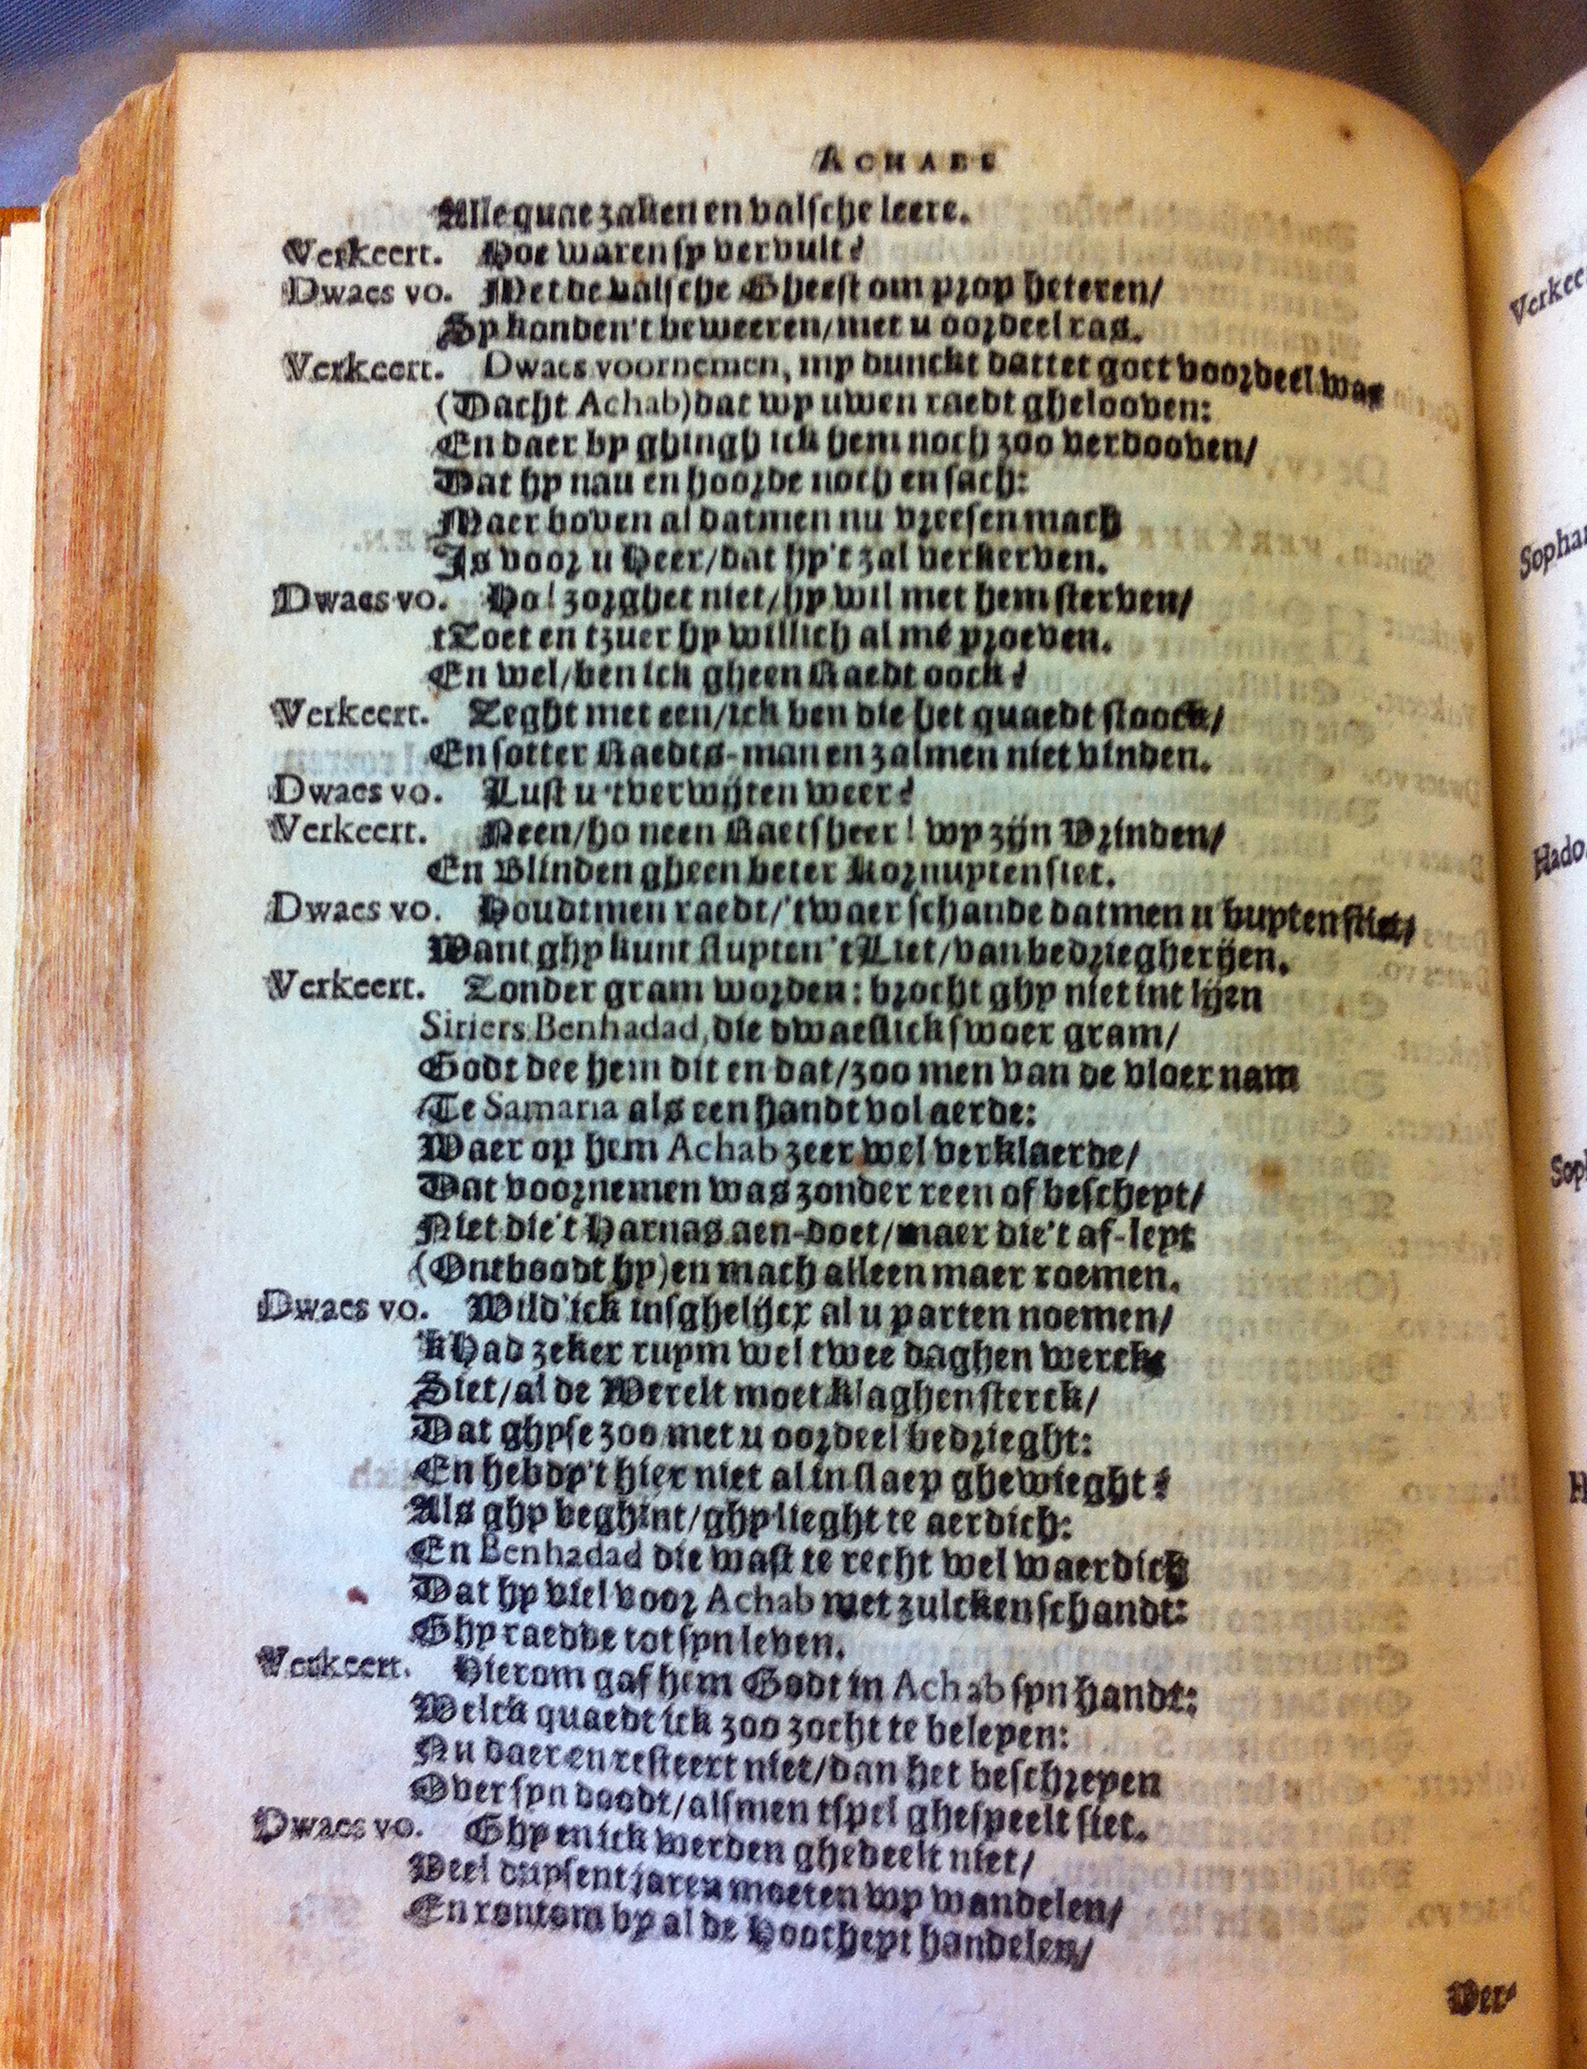 ACHABS
Alle quae zaken en valsche leere.
Verkeert. Hoe waren sy vervult?
Dwaes vo. Met de valsche Gheest om prop heteren/
Sy konden't beweeren/met u oordeel ras.
Verkeert. Dwaes voornemen, my dunckt dattet goet voordeel was
(Dacht Achab) dat wy uwen raedt ghelooven:
En daer by ghingh ick hem noch zoo verdooven/
Dat hy nau en hoorde noch en sach:
Maer boven al datmen nu vreesen mach
Is voor u Heer/dat hy't zal verkerven.
Dwaes vo. Ho! zorghet niet/hy wil met hem sterven/
tZoet en tzuer hy willich al mé proeven.
En wel/ben ick gheen Raedt oock?
Verkeert. Zeght met een/ick ben die het quaedt stoock/
En sotter Raedts-man en zalmen niet vinden.
Dwaes vo. Lust u 'tverwijten weer?
Verkeert. Neen/ho neen Raetsheer! wy zijn Vrinden/
En Blinden gheen beter kornuyten siet.
Dwaes vo. Houdtmen raedt/'twaer schande datmen u buyten stiet/
Want ghy kunt sluyten 't Liet/van bedriegherijen.
Verkeert. Zonder gram worden: brocht ghy niet int lijen
Siriers Benhadad, die dwaeslick swoer gram/
Godt dee hem dit en dat/zoo men van de vloer nam
Te Samaria als een handt vol aerde:
Waer op hem Achab zeer wel verklaerde/
Dat voornemen was zonder reen of bescheyt/
Niet die't Harnas aen-doet/maer die't af-leyt
(Ontboodt hy) en mach alleen maer roemen.
Dwaes vo. Wild' ick insghelijcx al u parten noemen/
'k Had zeker ruym wel twee daghen werck
Siet/al de Werelt moet klaghen sterck/
Dat ghyse zoo met u oordeel bedrieght:
En hebdy't hier niet al in slaep ghewieght?
Als ghy beghint/ghy lieght te aerdich:
En Benhadad die wast te recht wel waerdich
Dat hy viel voor Achab met zulcken schandt:
Ghy raedde tot syn leven.
Verkeert. Hierom gaf hem Godt in Achab syn handt:
Welck quaedt ick zoo zocht te beleyen:
Nu daer en resteert niet/dan het beschreyen
Over syn doodt/alsmen tspel ghespeelt siet.
Dwaes vo. Ghy en ick werden ghedeelt niet/
Veel duysent jaren moeten wy wandelen/
En rontom by al de Hoocheyt handelen/
Ver-